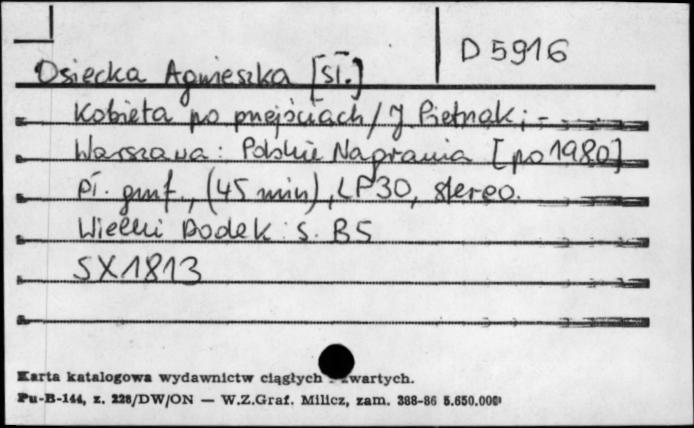 D 5916
Osiecka Agnieszka [sł.]
Kobieta po przejściach / J. Pietrzak ; -
Warszawa : Polskie Nagrania [po 1980]
pł. gmf., (45 min), LP30, stereo.
Wielki Dodek s. B5
SX1813
Karta katalogowa wydawnictw ciągłych zwartych.
Pu-B-144, z. 228/DW/ON — W.Z.Graf. Milicz, zam. 388-86 5.650.000